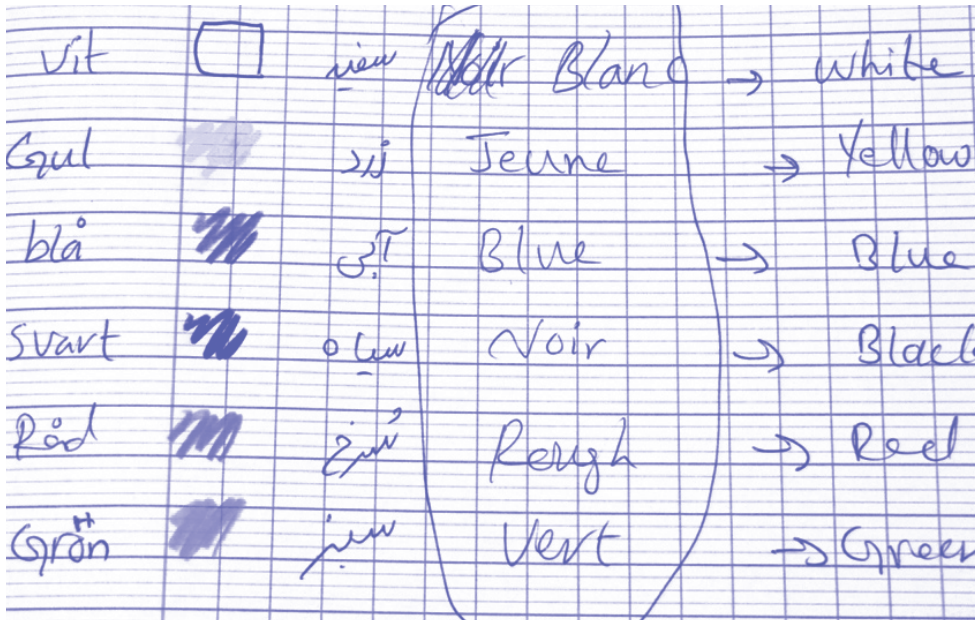 Vit سفید Blanc → White
Gul زرد Jeune → Yellow
blå آبی Blue → Blue
Svart سیاه Noir → Black
Råd سُرخ Rough → Red
Grön سبز Vert → Green